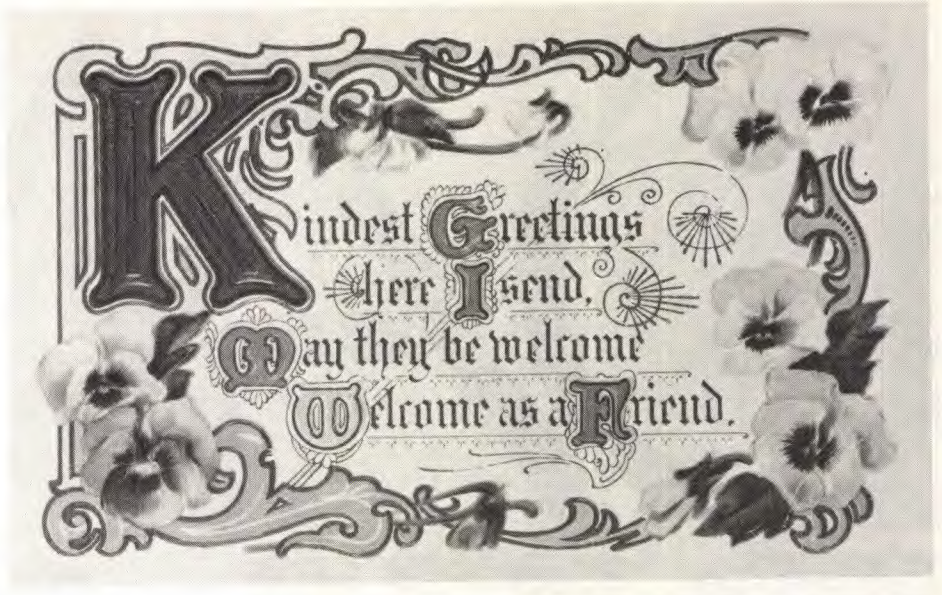 Kindest Greetings
here I send,
May they be welcome
Welcome as a Friend.